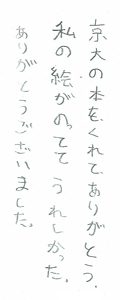 京大の本をくれてありがとう。
私の絵がのってて うれしかった。
ありがとうございました。